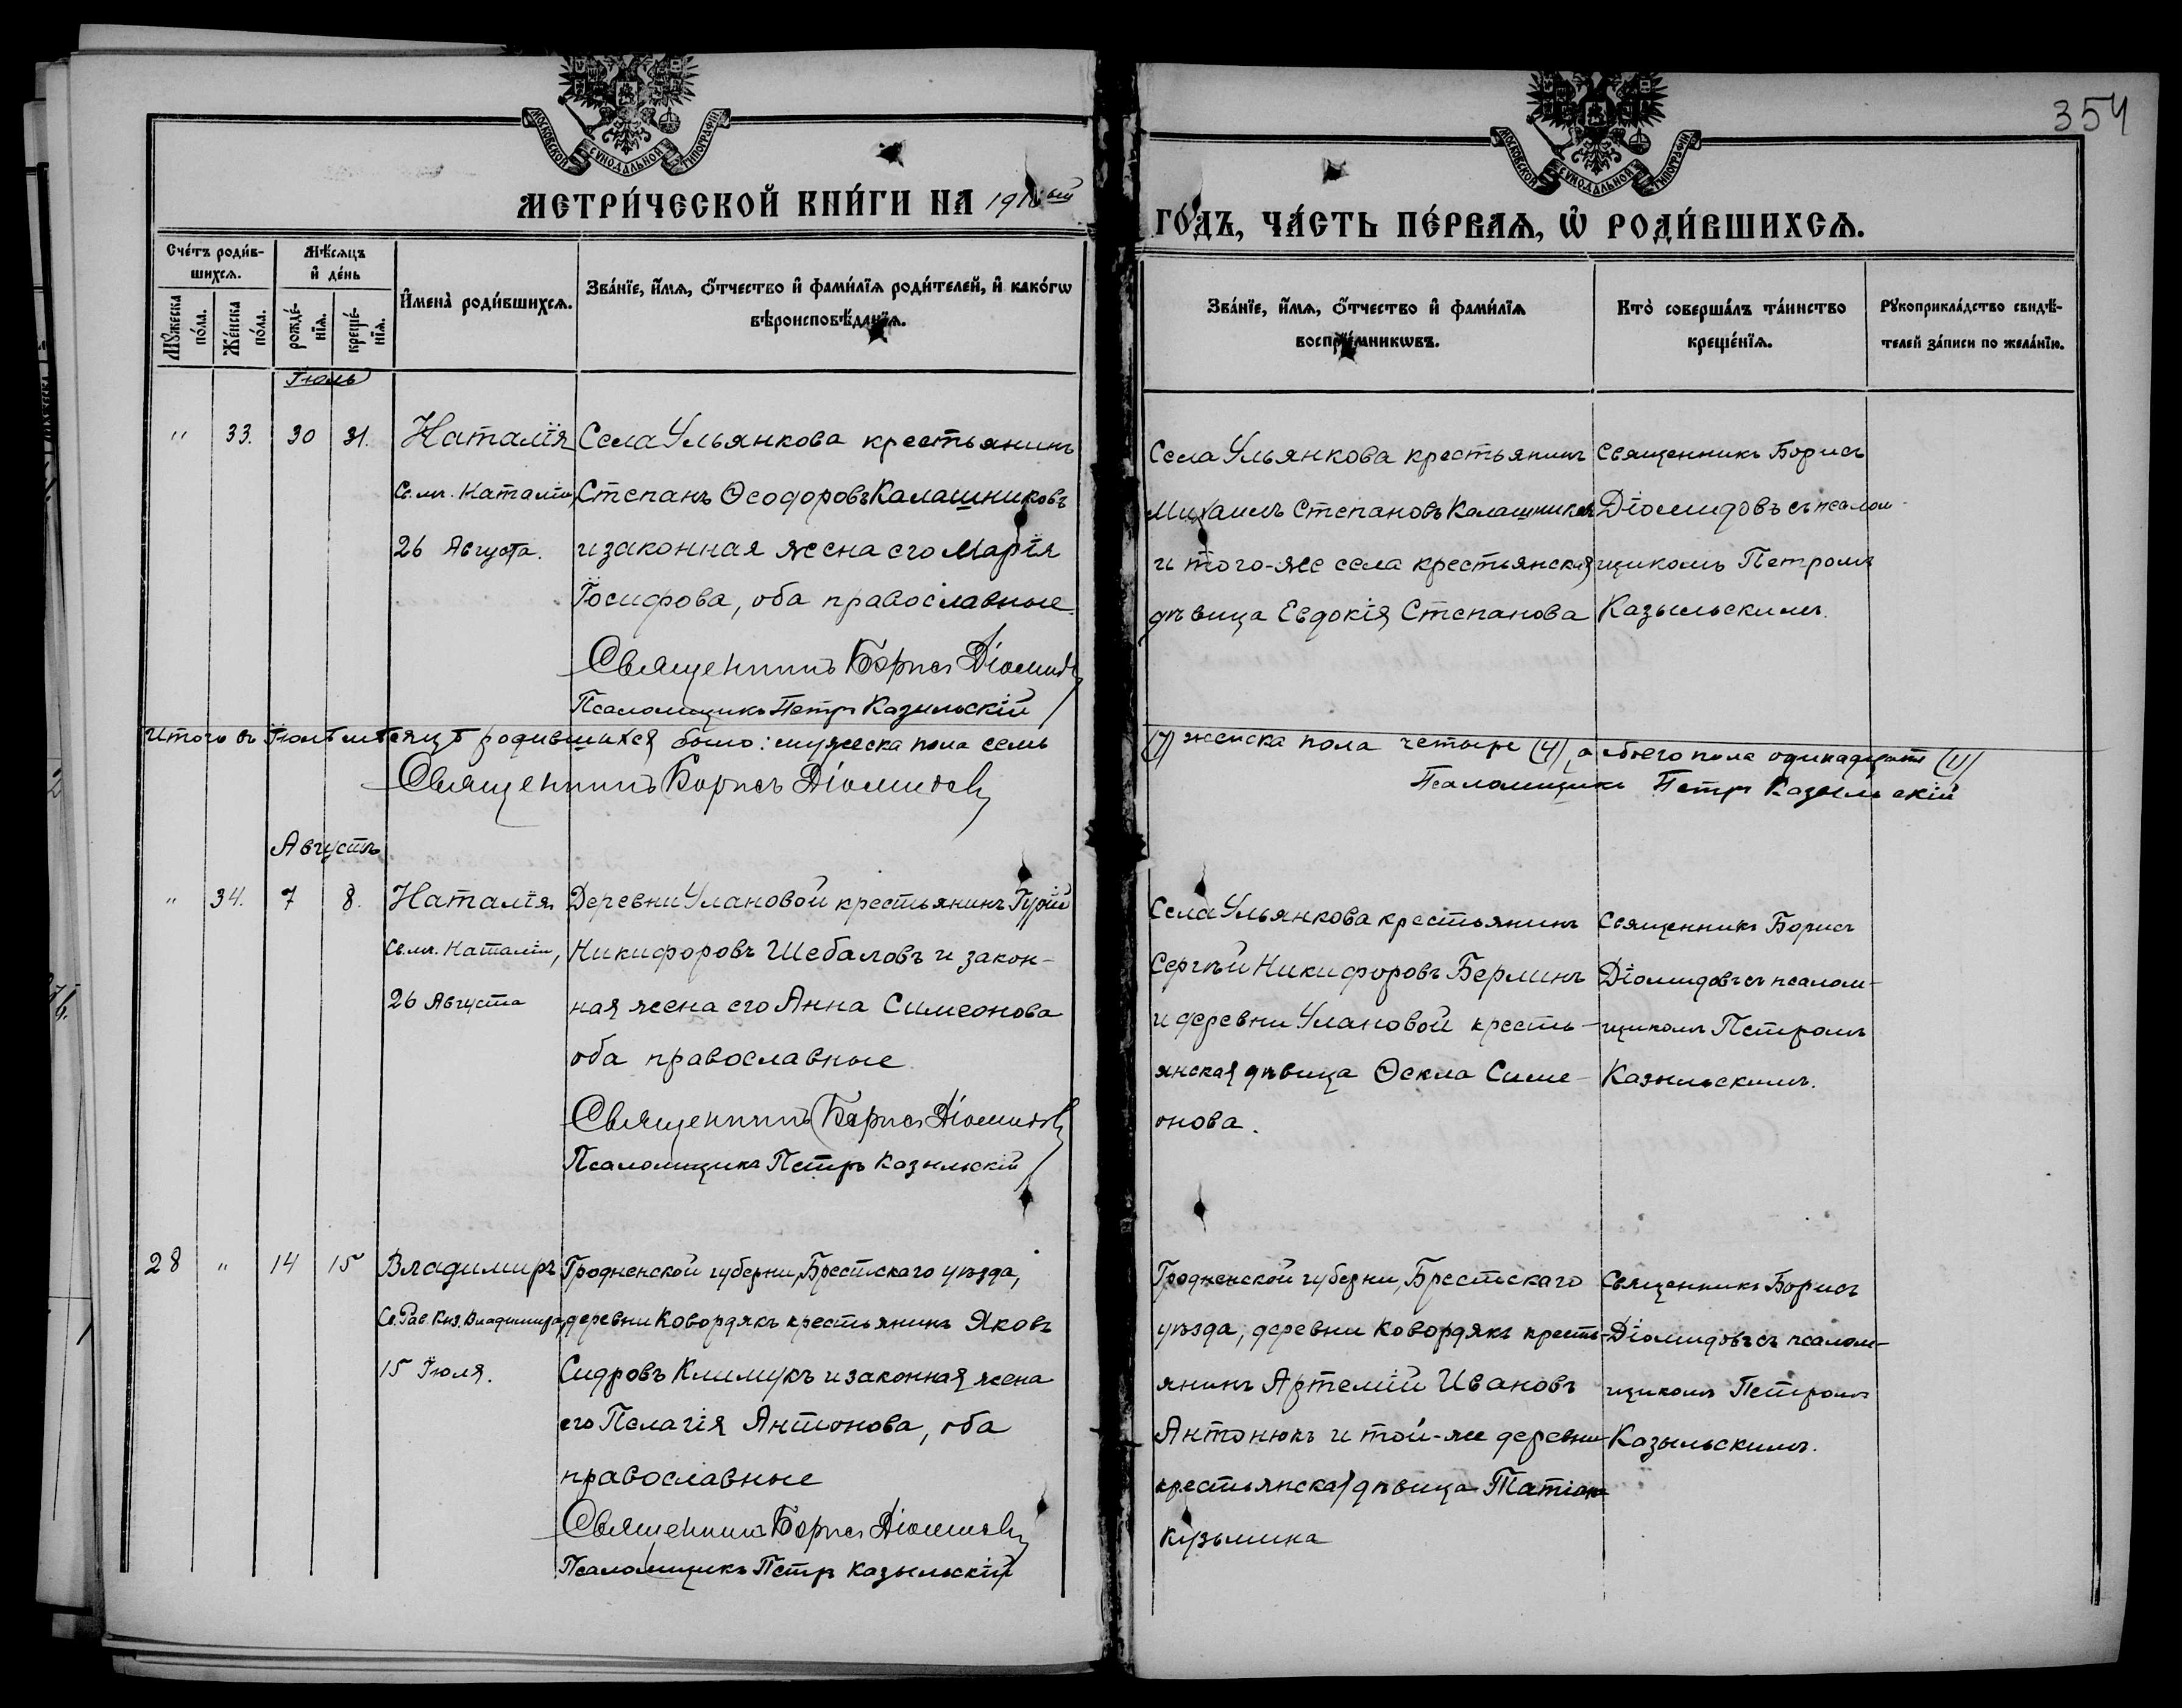 354
МОСКОВСКОЙ СѴНОДАЛЬНОЙ ТИПОГРАФІИ
МОСКОВСКОЙ СѴНОДАЛЬНОЙ ТИПОГРАФІИ
МЕТРИ́ЧЕСКОЙ КНИ́ГИ НА
ГО́ДЪ, ЧА́СТЬ ПЕ́РВАѦ, Ѡ҆ РОДИ́ВШИХСѦ.
Сче́тъ роди́в-
шихсѧ.
Мѣ́сѧцъ
и҆ де́нь
Мꙋ́жеска
по́ла.
Же́нска
по́ла.
рожде́-
нїѧ.
креще́-
нїѧ.
И҆мена̀ роди́вшихсѧ.
Зва́нїе, и҆́мѧ, ѻ҆́тчество и҆ фами́лїѧ роди́телей, и҆ како́гѡ
вѣроисповѣ́данїѧ.
Зва́нїе, и҆́мѧ, ѻ҆́тчество и҆ фами́лїѧ
воспрїе́мникѡвъ.
Кто̀ соверша́лъ та́инство
креще́нїѧ.
Рꙋкоприкла́дство свидѣ́-
телей за́писи по жела́нїю.
Іюль
" 33. 30 31.
Наталія
Св. мч. Наталіи,
26 Августа.
Села Ульянкова крестьянинъ
Степанъ Ѳеодоровъ Калашниковъ
и законная жена его Марія
Іосифова, оба православные.
Священникъ Борисъ Діомидовъ
Псаломщикъ Петръ Казыльскій
Села Ульянкова крестьянинъ
Михаилъ Степановъ Калашниковъ
и того-же села крестьянская
дѣвица Евдокія Степанова
Священникъ Борисъ
Діомидовъ съ псалом-
щикомъ Петромъ
Казыльскимъ.
Итого въ Іюлѣ мѣсяцѣ родившихся было: мужеска пола семь
(7) женска пола четыре (4), а обоего пола одинадцать (11)
Священникъ Борисъ Діомидовъ
Псаломщикъ Петръ Казыльскій
Августъ
" 34. 7 8.
Наталія
Св. мч. Наталіи,
26 Августа
Деревни Улановой крестьянинъ Гурій
Никифоровъ Шебаловъ и закон-
ная жена его Анна Симеонова
оба православные
Священникъ Борисъ Діомидовъ
Псаломщикъ Петръ Казыльскій
Села Ульянкова крестьянинъ
Сергѣй Никифоровъ Берлинъ
и деревни Улановой кресть-
янская дѣвица Ѳекла Симе-
онова.
Священникъ Борисъ
Діомидовъ съ псалом-
щикомъ Петромъ
Казыльскимъ.
28 " 14 15
Владимиръ
Св. Рав. Княз. Владимира,
15 Іюля.
Гродненской губерни, Брестскаго уѣзда,
деревни Ковордякъ крестьянинъ Яковъ
Сидровъ Климукъ и законная жена
его Пелагія Антонова, оба
православные
Священникъ Борисъ Діомидовъ
Псаломщикъ Петръ Казыльскій
Гродненской губерни, Брестскаго
уѣзда, деревни Ковордякъ кресть-
янинъ Артемій Ивановъ
Антонюкъ и той-же деревни
крестьянская дѣвица Татіана
Кузьмина
Священникъ Борисъ
Діомидовъ съ псалом-
щикомъ Петромъ
Казыльскимъ.